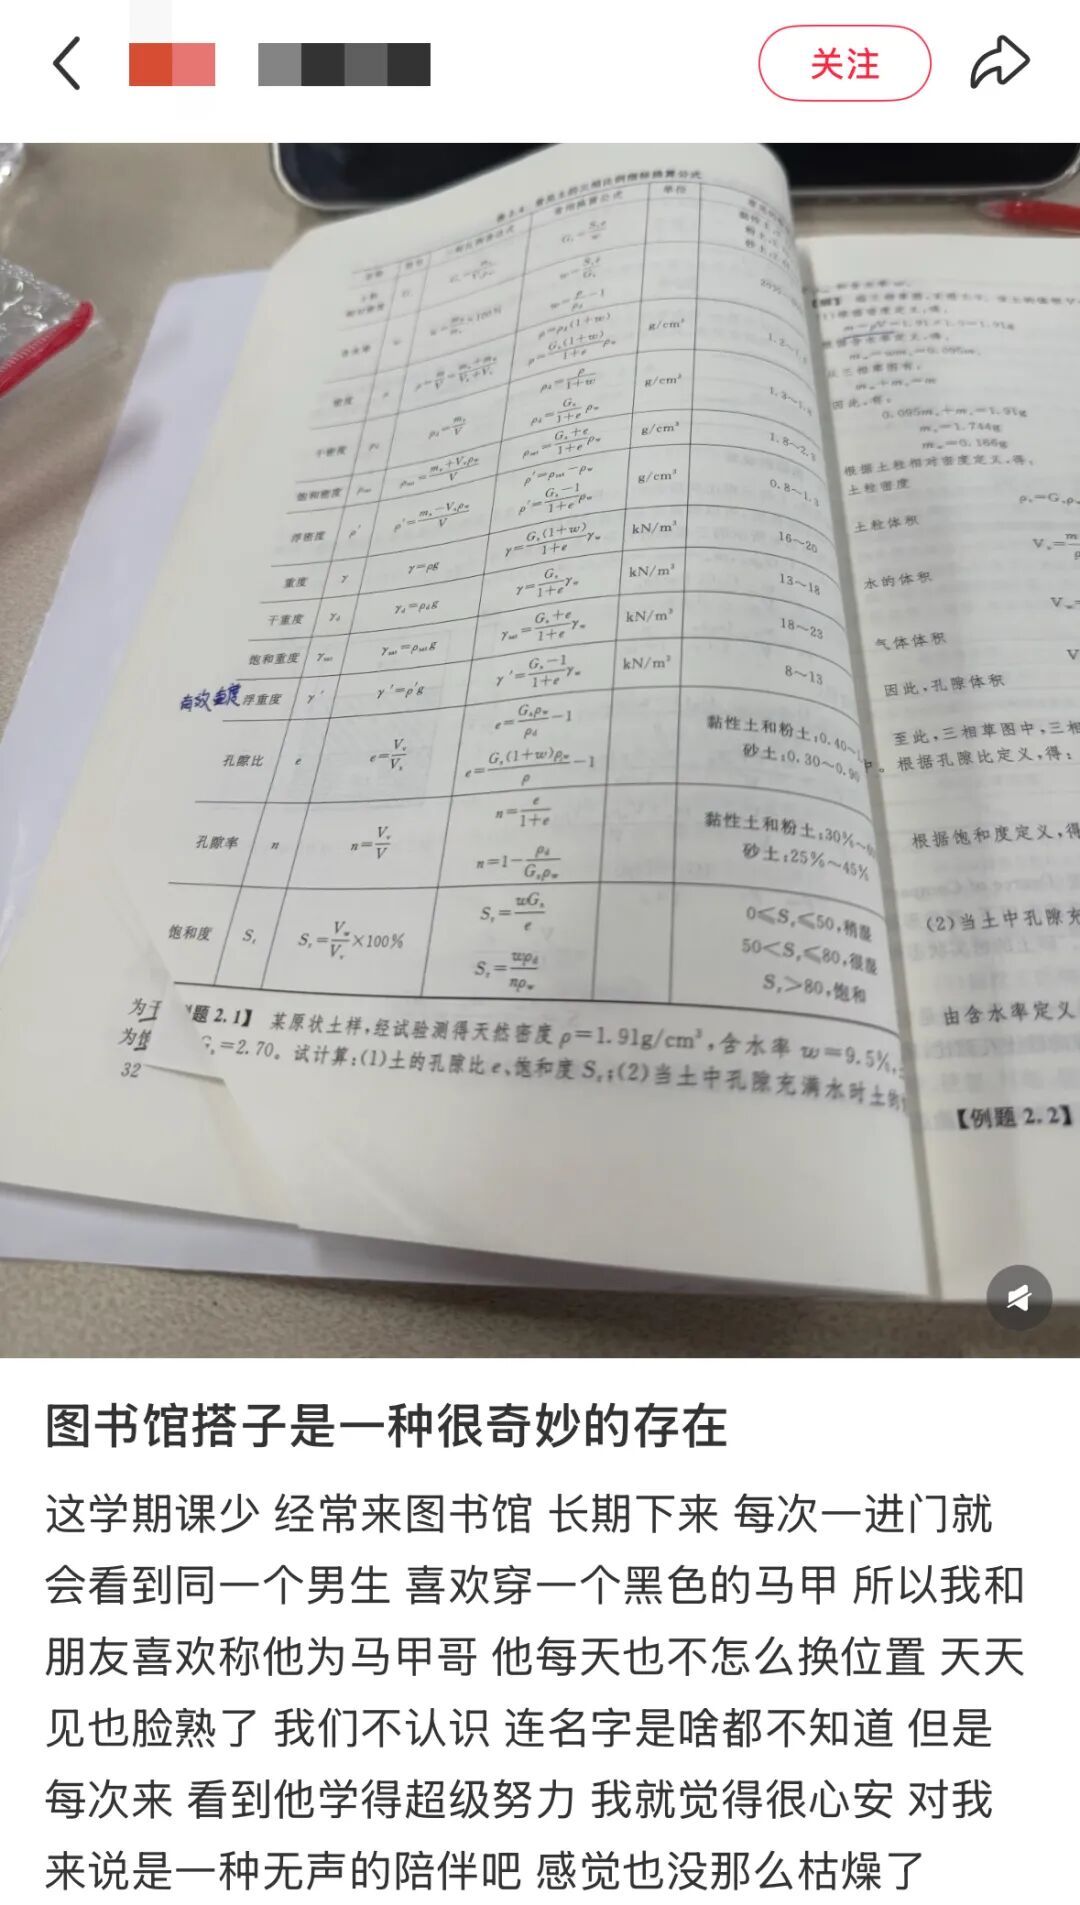 关注
表2.4 常见土的三相比例指标换算公式
单位
g/cm³
1.2~
g/cm³
1.3~1.
g/cm³
1.8~2.3
g/cm³
0.8~1.3
密度
干密度 ρd ρd=ms/V ρd=ρ/(1+w)
ρd=Gs/(1+e)ρw
饱和密度 ρsat ρsat=(ms+Vvρw)/V ρsat=(Gs+e)/(1+e)ρw
浮密度 ρ′ ρ′=(ms−Vsρw)/V ρ′=ρsat−ρw
ρ′=(Gs−1)/(1+e)ρw
重度 γ γ=ρg γ=Gs(1+w)/(1+e)γw kN/m³ 16~20
干重度 γd γd=ρdg γ=Gs/(1+e)γw kN/m³ 13~18
饱和重度 γsat γsat=ρsatg γsat=(Gs+e)/(1+e)γw kN/m³ 18~23
有效重度
浮重度 γ′ γ′=ρ′g γ′=(Gs−1)/(1+e)γw kN/m³ 8~13
孔隙比 e e=Vv/Vs e=Gsρw/ρd−1
e=Gs(1+w)ρw/ρ−1
黏性土和粉土:0.40~
砂土:0.30~0.90
孔隙率 n n=Vv/V n=e/(1+e)
n=1−ρd/(Gsρw)
黏性土和粉土:30%~
砂土:25%~45%
饱和度 Sr Sr=Vw/Vv×100% Sr=wGs/e
Sr=wρd/(nρw)
0⩽Sr⩽50,稍湿
50<Sr⩽80,很湿
Sr>80,饱和
为干
为饱
题2.1】 某原状土样,经试验测得天然密度 ρ=1.91g/cm³,含水率 w=9.5%,
Gs=2.70。试计算:(1)土的孔隙比 e、饱和度 Sr;(2)当土中孔隙充满水时土的
32
【解】
因此,有:
0.095ms+ms=1.91g
ms=1.744g
mw=0.166g
根据土粒相对密度定义,得:
土粒密度
土粒体积
水的体积
气体体积
因此,孔隙体积
至此,三相草图中,三相
中。根据孔隙比定义,得:
根据饱和度定义,得
(2)当土中孔隙充
由含水率定义
【例题2.2】
图书馆搭子是一种很奇妙的存在
这学期课少 经常来图书馆 长期下来 每次一进门就
会看到同一个男生 喜欢穿一个黑色的马甲 所以我和
朋友喜欢称他为马甲哥 他每天也不怎么换位置 天天
见也脸熟了 我们不认识 连名字是啥都不知道 但是
每次来 看到他学得超级努力 我就觉得很心安 对我
来说是一种无声的陪伴吧 感觉也没那么枯燥了